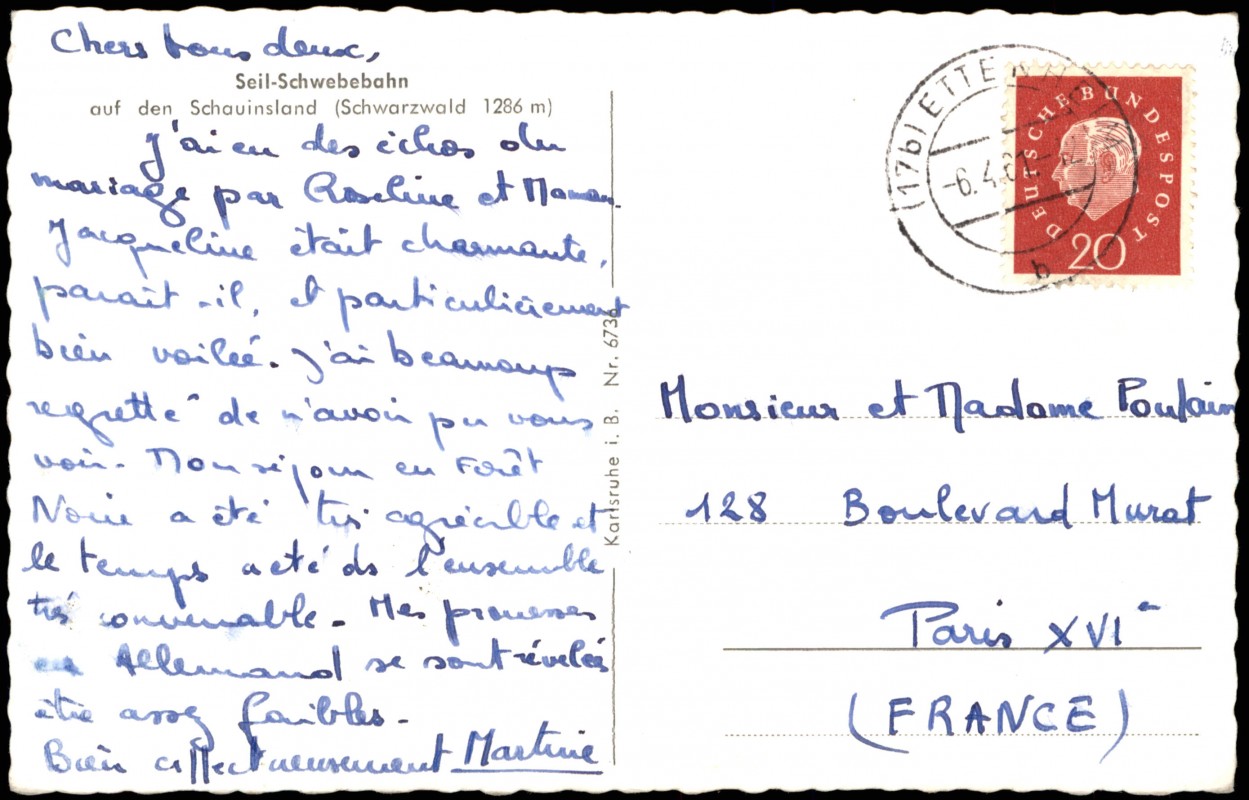 Chers tous deux,
Seil-Schwebebahn
auf den Schauinsland (Schwarzwald 1286 m)
J'ai eu des échos du
mariage par Roseline et Maman.
Jacqueline était charmante,
parait-il, et particulièrement
bien voilée. J'ai beaucoup
regretté de n'avoir pu vous
voir. Mon séjour en Forêt
Noire a été très agréable et
le temps a été ds l'ensemble
très convenable. Mes prouesses
en Allemand se sont révélées
être assez faibles.
Bien affectueusement Martine
Karlsruhe i. B. Nr. 6736
(17b) ETTENHEIM
-6.4.61
b
DEUTSCHE BUNDESPOST
20
Monsieur et Madame Poulain
128 Boulevard Murat
Paris XVIe
(FRANCE)